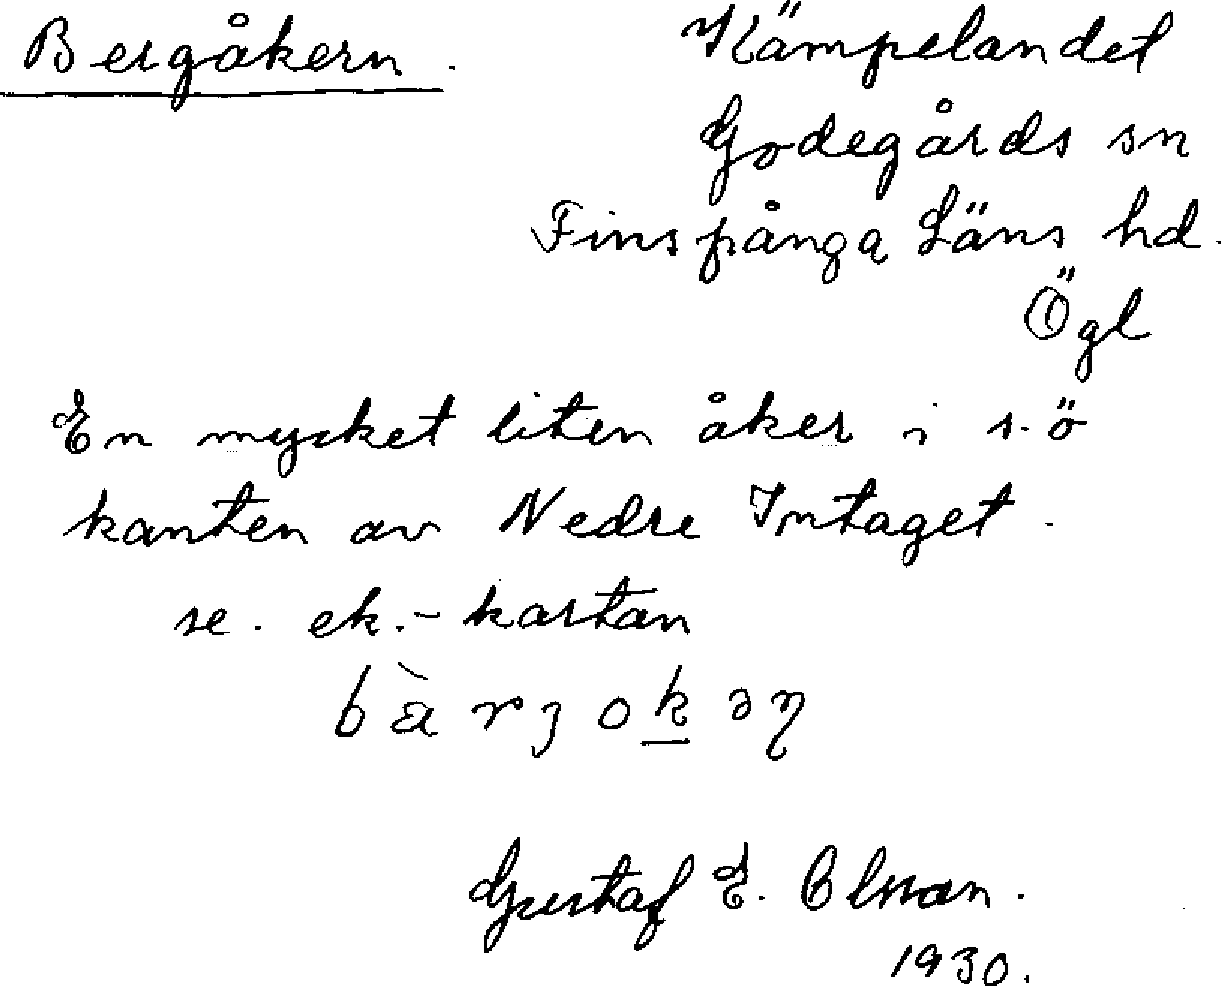 Bergåkern.
Kämpelandet
Godegårds sn
Finspånga Läns hd.
Ögl
En mycket liten åker i s.ö
kanten av Nedre Intaget.
se. ek.-kartan
Gustaf E. Olsson.
1930.